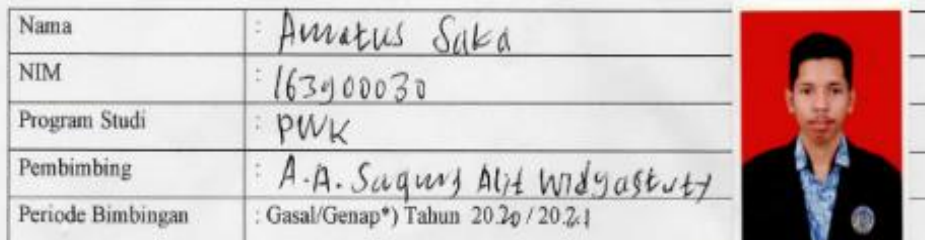 Nama : Amatus Saka
NIM : 163900030
Program Studi : PWK
Pembimbing : A.A. Sagung Alit Widyastuty
Periode Bimbingan : Gasal/Genap*) Tahun 2020 / 2021